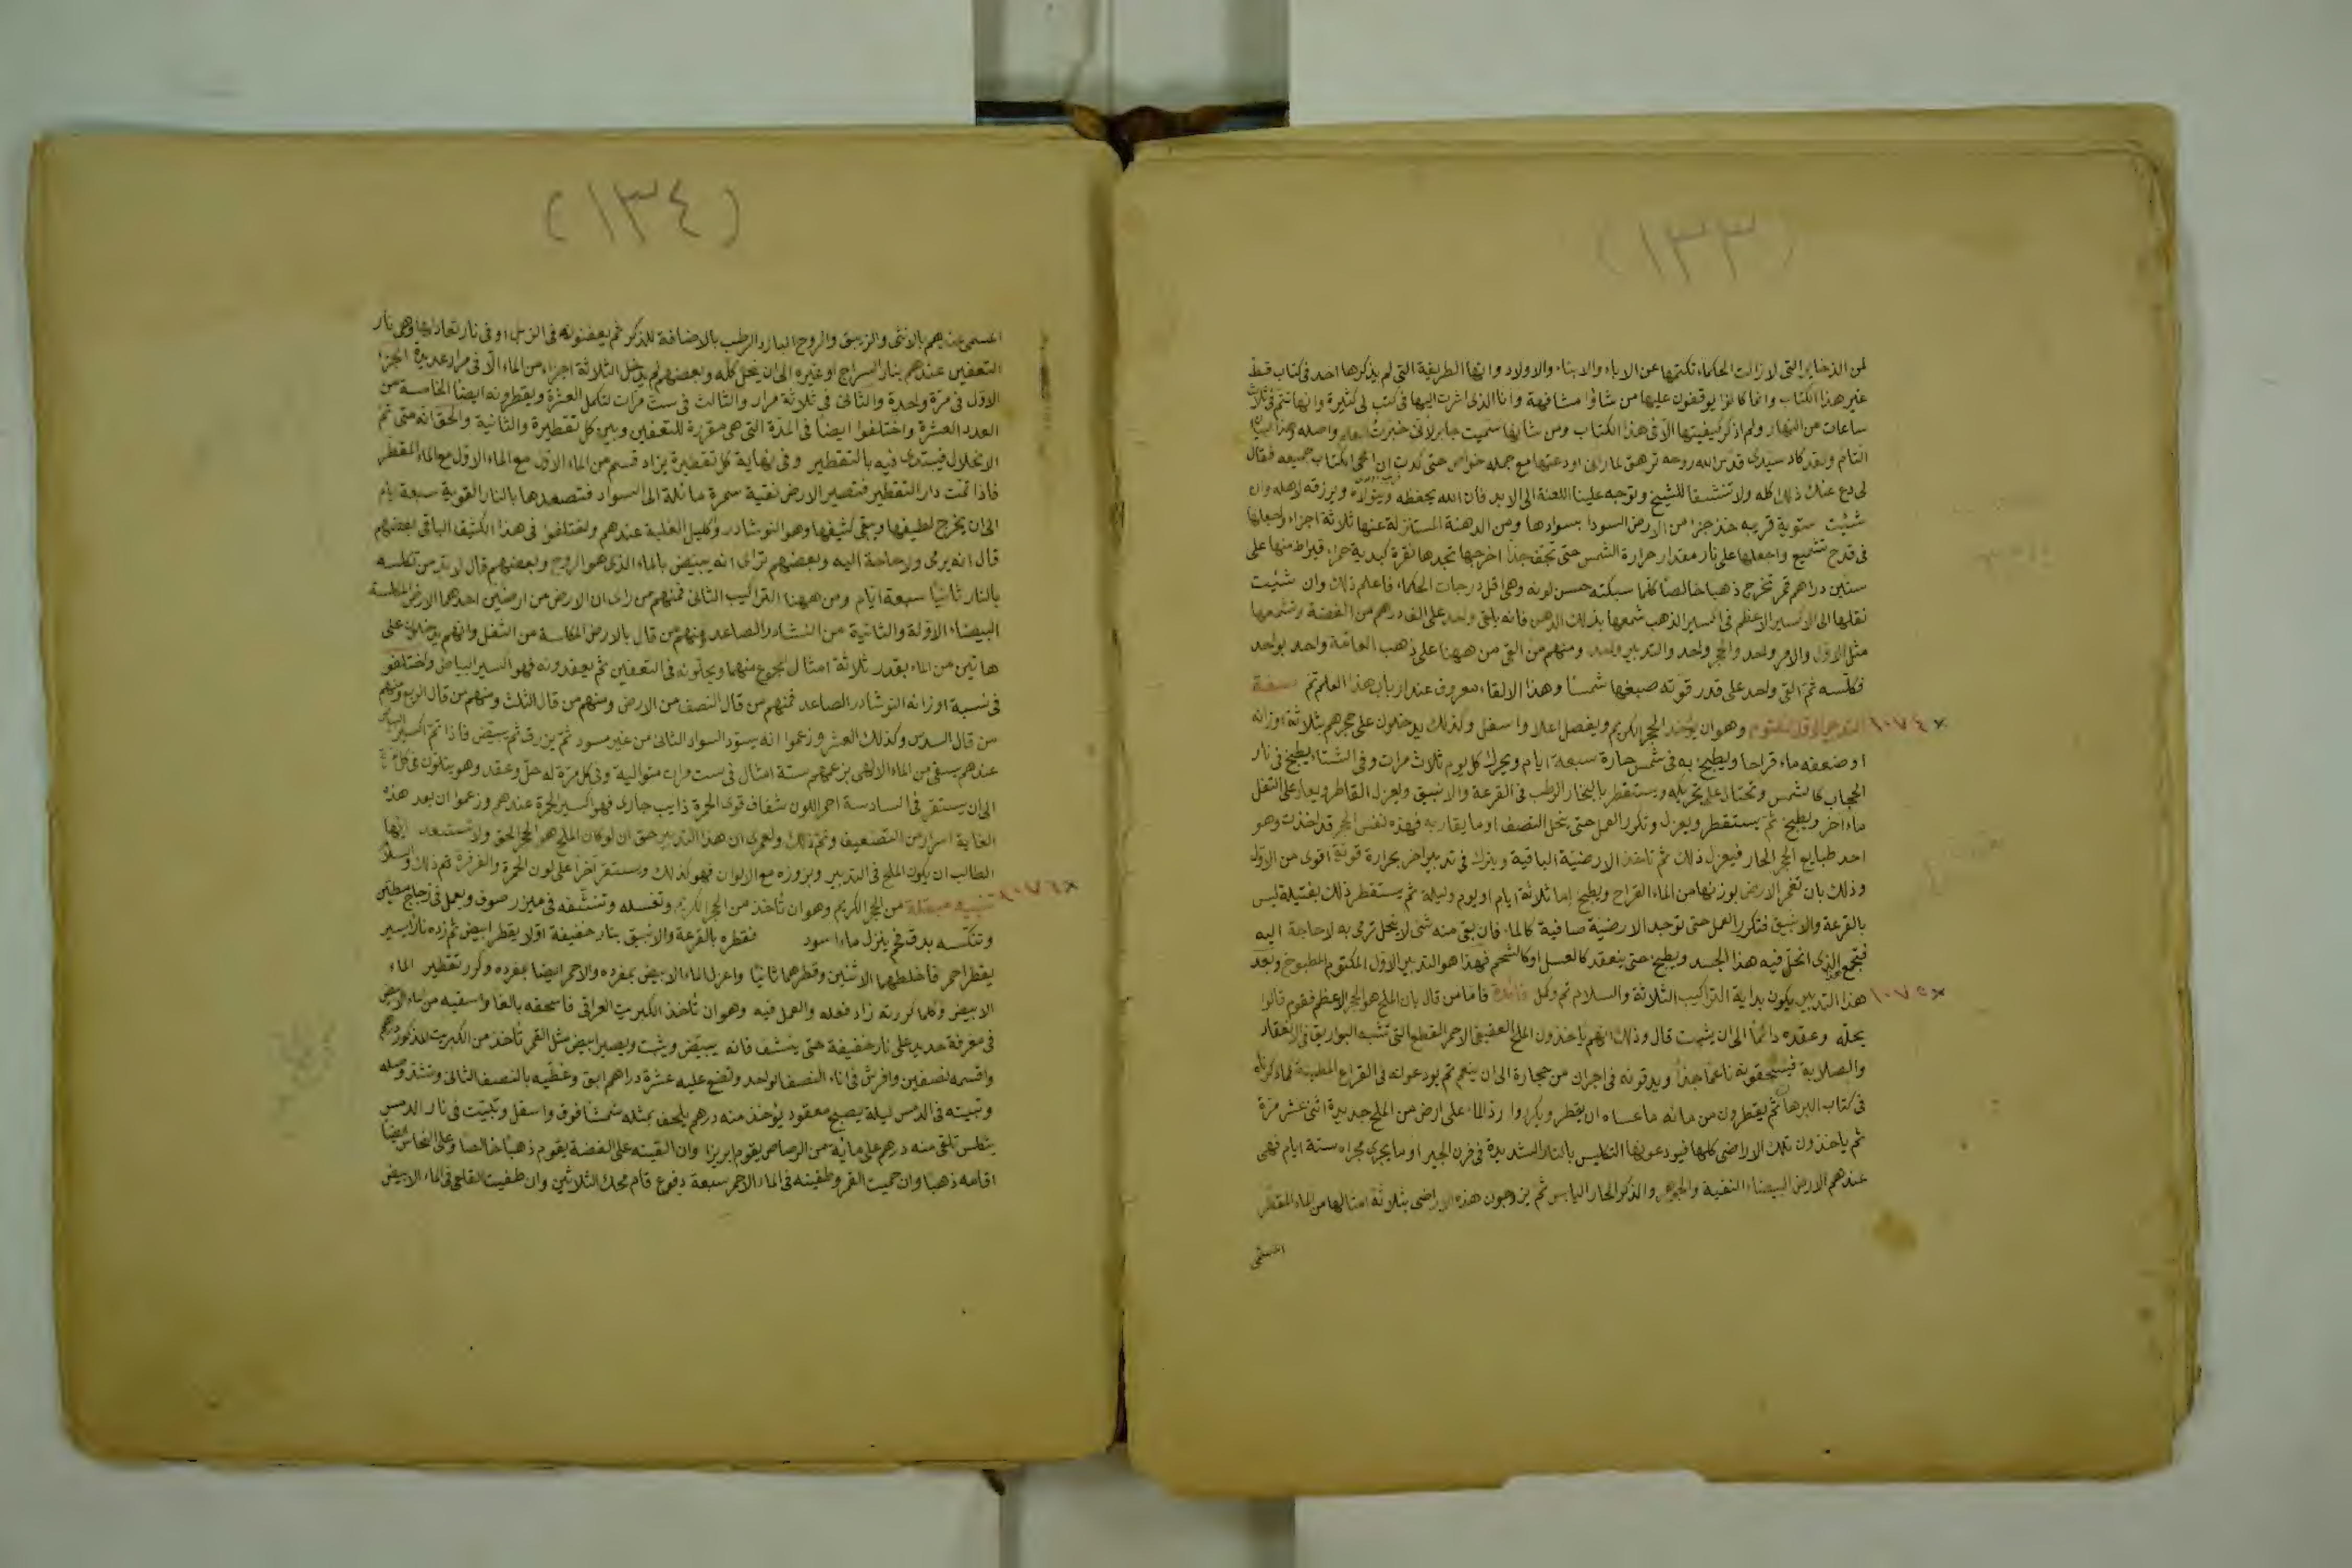 (١٣٣)
لمن الذخاير التى لا زالت الحكماء تكتمها عن الاباء والابناء والاولاد وانها الطريقة التى لم يذكرها احد فى كتاب قط
غير هذا الكتاب وانما كانوا يوقفون عليها من شاؤا مشافهة وانا الذى اشرت اليها فى كتب لى كثيرة وانها تتم فى ثلاث
ساعات من النهار ولم اذكر كيفيتها الا فى هذا الكتاب ومن شانها سميت جابر لانى
التام ولقد كاد سيدى قدس الله روحه ترهق لما رانى اودعتها مع جملة خواص حتى كدت ان امحى الكتاب جميعه فقال
لى دع عنك ذلك كله ولا تنشقا للشيخ وتوجه علينا اللعنة الى الابد فان الله يحفظه ويرزقه لاهله وان
شئت ستوية قريبه خذ جزء من الارض السودا بسوادها ومن الدهنة المستنزلة عنها ثلاثة اجزاء واجعلها
فى قدح تشميع واجعلها على نار مقدار حرارة الشمس حتى تجف جدا اخرجها تجدها نقرة كبدية حمراء قيراط منها على
ستين دراهم قمر تخرج ذهبا خالصا كلما سبكته حسن لونه وهى اقل درجات الحكماء فاعلم ذلك وان شئت
نقلها الى الاكسير الاعظم فى اكسير الذهب شمعها بذلك الدهن فانه يلقى واحد على الف درهم من الفضة وتشمعها
مثل الاول والامر واحد والحجر واحد والتدبير واحد ومنهم من القى من ههنا على ذهب العامة واحد بواحد
فكلسه ثم القى واحد على قدر قوته صبغها شمسا وهذا الالقاء معروف عند ارباب هذا العلم تم صفة
×١٠٧٤ التدبير الاول المكتوم وهو ان يؤخذ الحجر الكريم ويفصل اعلا واسفل وكذلك يدخلون على حجرهم بثلاثة اوزانه
او ضعفه ماء قراحا ويطبخ به فى شمس حارة سبعة ايام ويحرك كل يوم ثلاث مرات وفى الشتاء يطبخ فى نار
الحجاب كالشمس وتحتال على تحريكه ويستقطر بالبخار الرطب فى القرعة والانبيق ويعزل القاطر ويعاد على الثفل
ماء اخر ويطبخ ثم يستقطر ويعزل وتكرر العمل حتى ينحل النصف او ما يقاربه فهذه نفس الحجر قد اخذت وهو
احد طبايع الحجر الحار فيعزل ذلك ثم تاخذ الارضية الباقية ويترك فى تدبير اخر بحرارة قوته اقوى من الاول
وذلك بان تغمر الارض بوزنها من الماء القراح ويطبخ اما ثلاثة ايام او يوم وليلة ثم يستقطر ذلك بفتيلة ليس
بالقرعة والانبيق فتكرر العمل حتى توجد الارضية صافية كالماء فان بقى منه شى لا ينحل ترمى به لا حاجة اليه
فتجمع الذى انحل فيه هذا الجسد ويطبخ حتى ينعقد كالعسل او كالشحم فهذا هو التدبير الاول المكتوم المطبوخ وبعد
×١٠٧٥ هذا التدبير يكون بداية التراكيب الثلاثة والسلام تم وكمل فائدة فاما من قال بان الملح هو الحجر الاعظم فقوم قالوا
يحله وعقده دائما الى ان يشمت قال وذلك انهم ياخذون الملح العقيقى الاحمر المقطع التى تشبه البواريق فى الانعقاد
والصلابة فيسحقونه ناعما جدا ويدقونه فى اجران من حجارة الى ان ينعم ثم يودعونه فى القراع المطينة كما ذكرناه
فى كتاب البرهان ثم يقطرون من مائه ما عساه ان يقطر ويكرروا رد الماء على ارض من الملح جديدة اثنى عشر مرة
ثم ياخذون تلك الاراضى كلها فيودعونها التكليس بالنار الشديدة فى فرن الجير او ما يجرى مجراه ستة ايام فهى
عندهم الارض البيضاء النقية والجوهر والذكر الحار اليابس ثم يزوجون هذه الاراضى بثلاثة امثالها من الماء المقطر
المسمى
(١٣٤)
المسمى عندهم بالانثى والزيبق والروح البارد الرطب بالاضافة للذكر ثم يعفنونه فى الزبل او فى نار تعادلها وهى نار
التعفين عندهم بنار السراج او غيره الى ان يحل كله وبعضهم لم يدخل الثلاثة اجزاء من الماء الا فى مرار عديدة الجزء
الاول فى مرة واحدة والثانى فى ثلاثة مرار والثالث فى ست مرات لتكمل العشرة ويقطرونه ايضا الخاصة من
العدد العشرة واختلفوا ايضا فى المدة التى هى مقررة للتعفين وبين كل تقطيرة والثانية والحق انه متى تم
الانحلال فيبتدى فيه بالتقطير وفى نهاية كل تقطيرة يزاد قسم من الماء الاول مع الماء الاول مع الماء المقطر
فاذا تمت دار التقطير فتصير الارض نقية سمرة مائلة الى السواد فتصعدها بالنار القوية سبعة ايام
الى ان يخرج لطيفها ويبقى كثيفها وهو النوشادر واكليل الغلبة عندهم واختلفوا فى هذا الكثيف الباقى بعضهم
قال انه يرمى ولا حاجة اليه وبعضهم تراى انه يبيض بالماء الذى هو الروح وبعضهم قال لا بد من تكلسه
بالنار ثانيا سبعة ايام ومن ههنا التراكيب الثانى فمنهم من راى ان الارض من ارضين احدهما الارض المكلسة
البيضاء الاولة والثانية من النشادر الصاعد ومنهم من قال بالارض المكلسة من الثفل وانهم يدخلون على
هاتين من الماء بقدر ثلاثة امثال المجموع منها ويحلونه فى التعفين ثم يعقدونه فهو اكسير البياض واختلفو
فى نسبة اوزانه النوشادر الصاعد فمنهم من قال النصف من الارض ومنهم من قال الثلث ومنهم من قال الربع ومنهم
من قال السدس وكذلك العشر وزعموا انه يسود السواد الثانى من غير مسود ثم يزرق ثم يبيض فاذا تم اكسير البياض
عندهم يسقى من الماء الالهى بزعمهم ستة امثال فى ست مرات متوالية وفى كل مرة له حل وعقد وهو يتلون فى كل
الى ان يستقر فى السادسة احمر اللون شفاف قوى الحمرة ذايب جارى فهو اكسير الحمرة عندهم وزعموا ان بعد هذه
الغاية اسرار من التضعيف وتم ذلك ولعمرى ان هذا التدبير حق ان لو كان الملح هو الحجر الحق ولا تستبعد ايها
الطالب ان يكون الملح فى التدبير وبروزه مع الالوان فهو كذلك ويستقر اخرا على لون الحمرة والفرفرة تم ذلك والسلام
×١٠٧٦ من الحجر الكريم وهو ان تاخذ من الحجر الكريم وتغسله وتنشفه فى ميزر صوف ويعمل فى زجاج مطين
وتنكسه بدق فح ينزل ماء اسود فقطره بالقرعة والانبيق بنار خفيفة اولا يقطر ابيض ثم زده نارا يسير
يقطر احمر فاخلطهما الاثنين وقطرهما ثانيا واعزل الماء الابيض بمفرده والاحمر ايضا بمفرده وكرر تقطير الماء
الابيض وكلما كررته زاد فعله والعمل فيه وهو ان تاخذ الكبريت العراقى فاسحقه بالغا واسقيه من الماء الابيض
فى مغرفة حديد على نار خفيفة حتى ينشف فانه يبيض ويثبت ويصير ابيض مثل القمر تاخذ من الكبريت المذكور درهم
واقسمه نصفين وافرش فى اناء النصف الواحد وتضع عليه عشرة دراهم ابق وغطيه بالنصف الثانى وتشد وصله
وتبيته فى الدمس ليلة يصبح معقود يؤخذ منه درهم يلحف بمثله شمسا فوق واسفل وتبيت فى نار الدمس
تلقى منه درهم على مائة من الرصاص يقوم ابريزا وان القيته على الفضة يقوم ذهبا خالصا وعلى النحاس ايضا
اقامه ذهبا وان حميت القمر وطفيته فى الماء الاحمر سبعة دفوع قام محك الثلاثين وان طفيت القلعى فى الماء الابيض